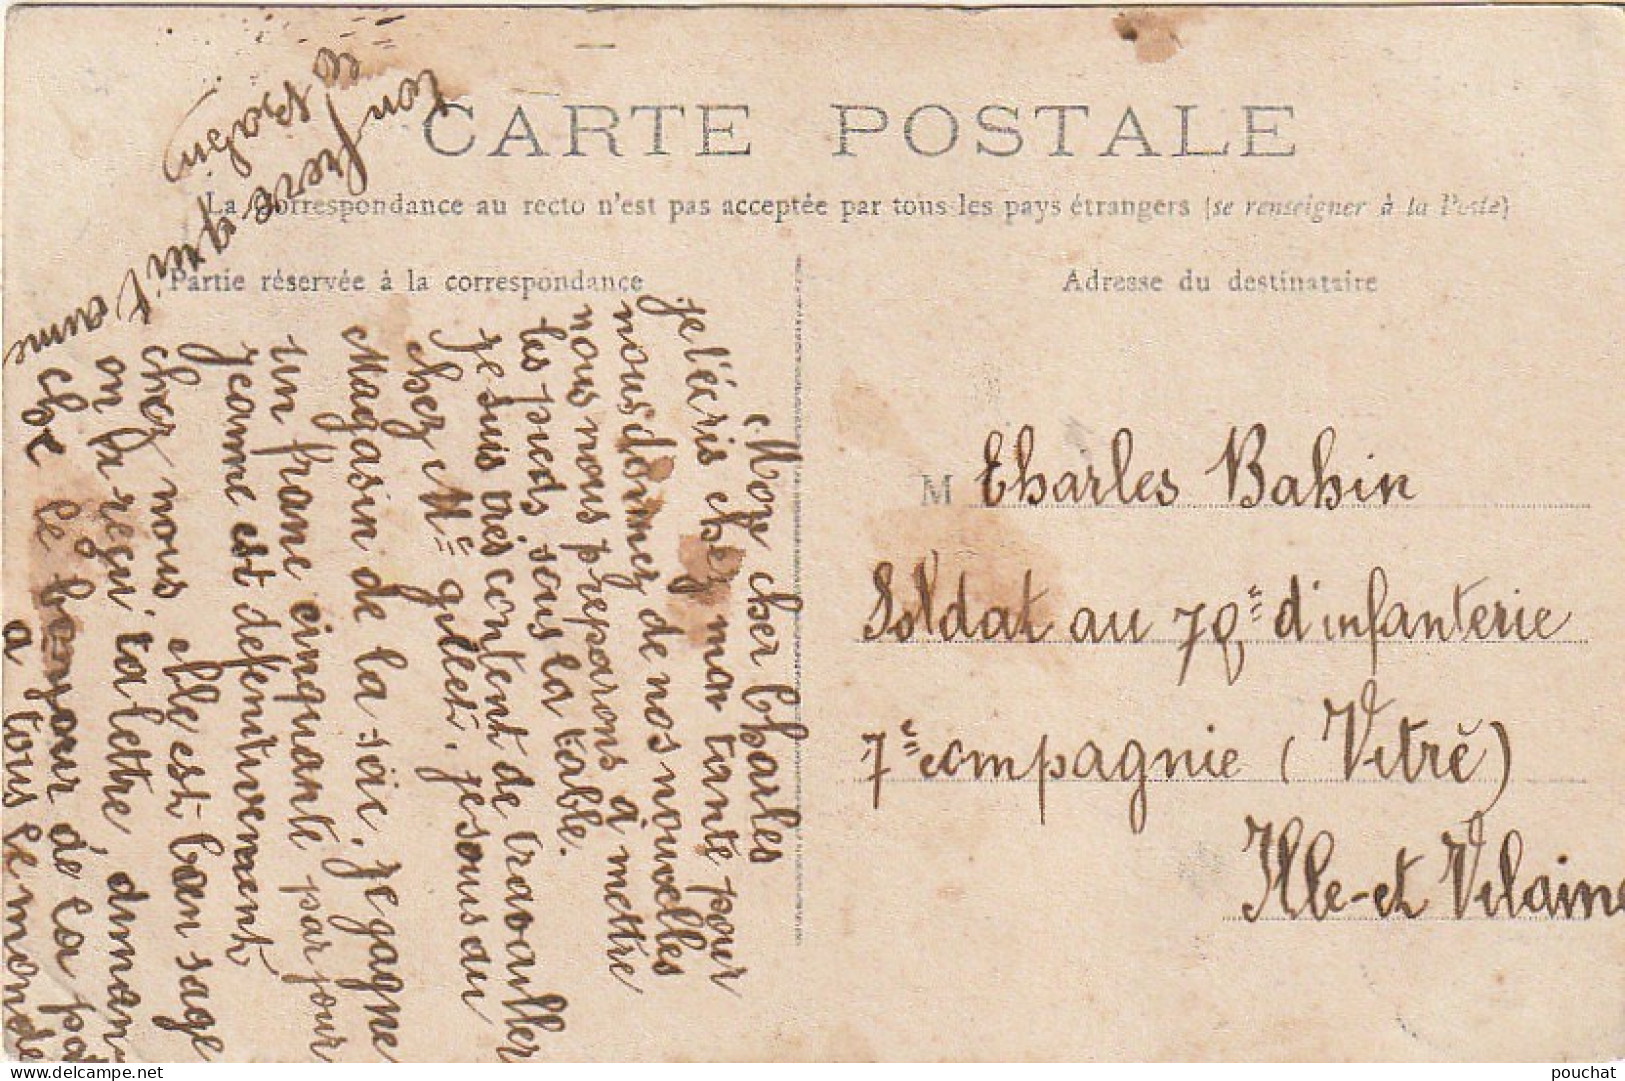 CARTE POSTALE
La Correspondance au recto n'est pas acceptée par tous les pays étrangers (se renseigner à la Poste)
Partie réservée à la correspondance
Adresse du destinataire
Mon cher Charles
je l'écris chez ma tante pour
nous donnez de nos nouvelles
nous nous preparons à mettre
les pieds sous la table.
je suis très content de travailler
chez Me gillet. je sous au
Magasin de la sòie. je gagne
un franc cinquante par jour
Jeanne est defentivement
chez nous, elle est bien sage
on la reçu ta lettre, dumon
che le bonjour de la pa
a tous le monde
ton frere qui t'aime
E Bahin
M Charles Bahin
Soldat au 70e d'infanterie
7e compagnie (Vitré)
Ille-et Vilaine
pouchat